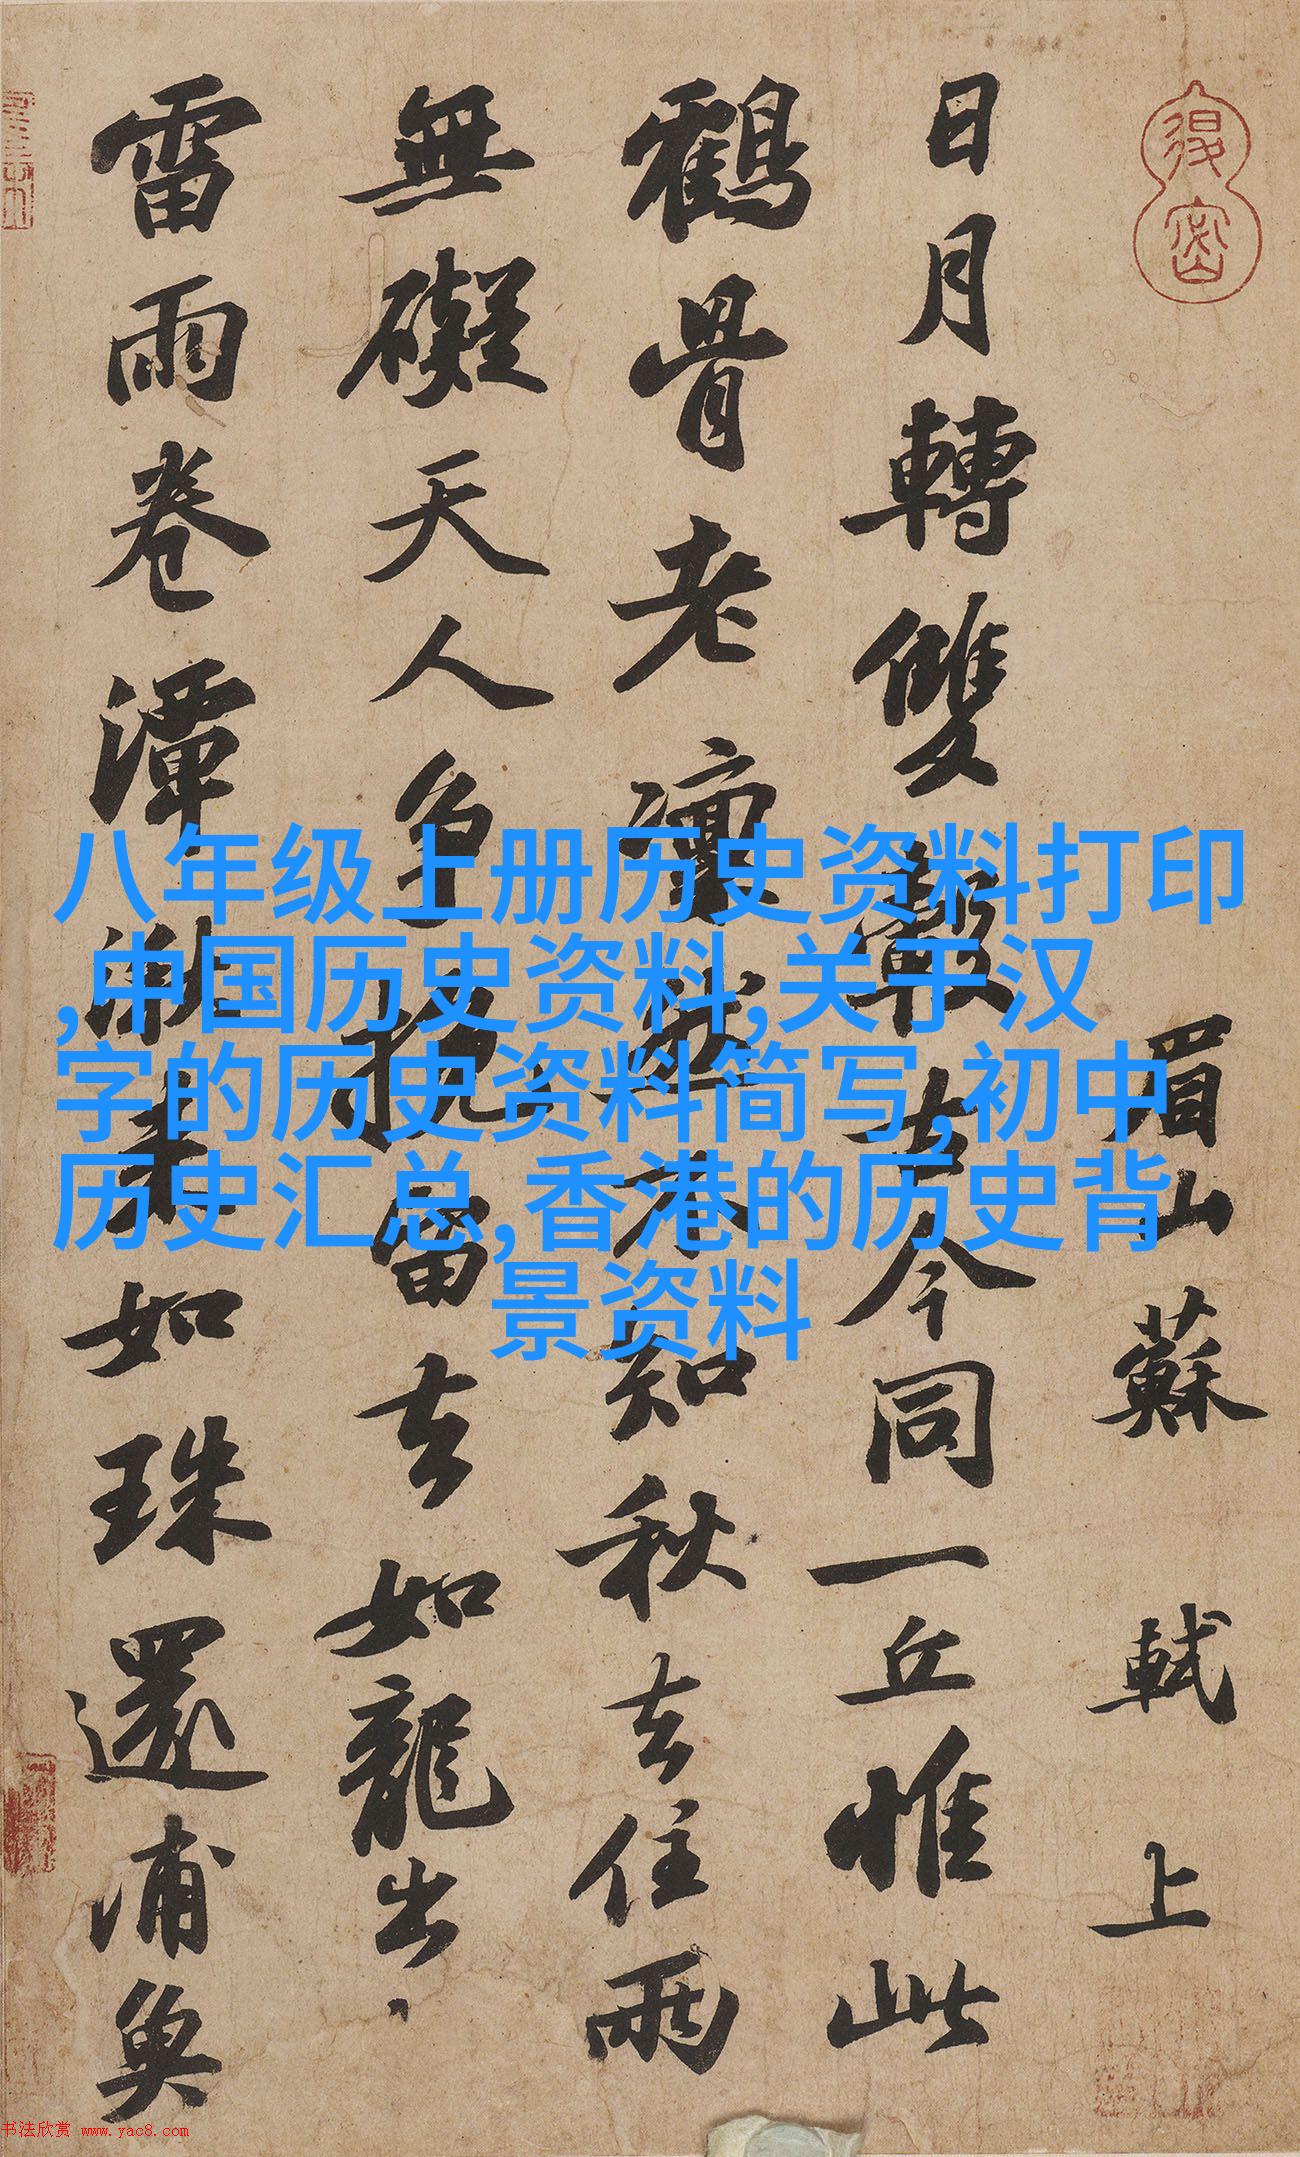 眉山蘇軾上
日月轉雙轂古今同一丘惟此
鶴骨老凛然不知秋去住兩
無礙天人争挽留去如龍出
雷雨卷潭湫来如珠還浦魚
八年级上册历史资料打印
,中国历史资料,关于汉
字的历史资料简写,初中
历史汇总,香港的历史背
景资料
书法欣赏 www.yac8.com